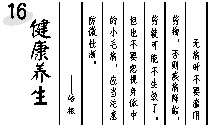 16
健康养生
无病时不要滥用
药物，否则疾病降临，
药就可能不生效了。
但也不要忽视身体中
的小毛病，应当注意
防微杜渐。